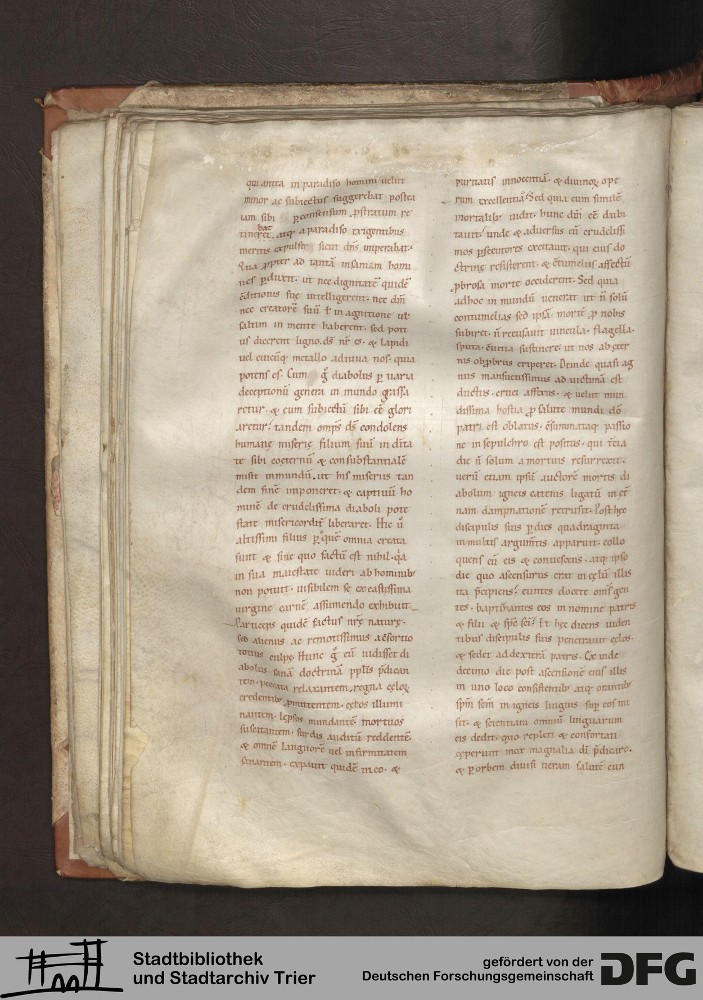 qui antea in paradiso homini uelut
minor ac subiectus suggerebat postea
iam sibi ꝑ consensum ꝓstratum re
tineret
bat
atq; a paradiso exigentibus
meritis expulso sicut dn̄s imperabat.
Qua ꝓpter ad tantā insaniam homi
nes ꝑduxit. ut nec dignitatē quidē
c̄ditionis suę intelligerent. nec dm̄
nec creatorē suū ł in agnitione uł
saltim in mente haberent. sed poti
us dicerent ligno. ds̄ nr̄ es. & lapidi
uel cuicūq; metallo adiuua nos. quia
potens es. Cum g̊ diabolus ꝑ uaria
deceptionū genera in mundo grassa
retur. & eum subiectū sibi eē glori
aretur. tandem omps̄ ds̄ condolens
humanę miserię filium suū in dīta
te sibi coęternū & consubstantialē
misit in mundū. ut his miseriis tan
dem finē imponeret. & captiuū ho
minē de crudelissima diaboli pote
state misericordit̄ liberaret. Hic ū
altissimi filius ꝑ quē omnia creata
sunt & sine quo factū est nihil. q̇a
in sua maiestate uideri ab hominib;
non potuit. uisibilem se ex castissima
uirgine carnē assumendo exhibuit.
Particeps quidē factus nrę̄ naturę.
sed alienus ac remotissimus a c̄sortio
totius culpę. Hunc g̊ cū uidisset di
abolus sanā doctrinā ppłis p̄dican
tem. peccata relaxantem. regna cęloꝝ
credentib; ꝓmittentem. cęcos illumi
nantem. leprosos mundantē mortuos
suscitantem. surdis auditū reddentē.
& omnē languorē uel infirmitatem
sanantem. expauit quidē in eo. &
puritatis innocentiā. & diuinoꝝ ope
rum excellentiā. Sed quia eum similē
mortalib; uidit. hunc dm̄ eē dubi
tauit. unde & aduersus eū crudelissi
mos ꝑsecutores excitauit. qui eius do
ctrinę resisterent. & c̄tumeliis affectū
ꝓbrosa morte occiderent. Sed quia
adhoc in mundū uenerat ut n̄ solū
contumelias sed ipsā mortē ꝓ nobis
subiret. n̄ recusauit uincula. flagella.
sputa. c̄uitia sustinere. ut nos ab ęter
nis obꝓbriis eriperet. Deinde quasi ag
nus mansuetissimus ad uictimā est
ductus. cruci affixus. & uelut mun
dissima hostia ꝓ salute mundi dō
patri est oblatus. c̄summataq; passio
ne in sepulchro est positus. qui t̄cia
die n̄ solum a mortuis resurrexit.
uerū etiam ipsū auctorē mortis di
abolum igneis catenis ligatū in ęt̄
nam dampnationē retrusit. Post hęc
discipulis suis ꝑ dies quadraginta
in multis argum̄tis apparuit. collo
quens cū eis & conuescens. atq; ipso
die quo ascensurus erat in cęlū illis
ita p̄cipiens. euntes docete om̄s gen
tes. baptizantes eos in nomine patris
& filii & sp̄c sc̄i. Et hęc dicens uiden
tibus discipulis suis penetrauit cęlos.
& sedet ad dexterā patris. Ex inde
decimo die post ascensionē eius illis
in uno loco consistentib; atq; orantib;
sp̄m sc̄m in igneis linguis suꝑ eos mi
sit. & scientiam omniū linguarum
eis dedit. quo repleti & confortati
cęperunt mox magnalia di p̄dicare.
& ꝑ orbem diuisi ueram salutē cun
Stadtbibliothek
und Stadtarchiv Trier
gefördert von der
Deutschen Forschungsgemeinschaft
DFG